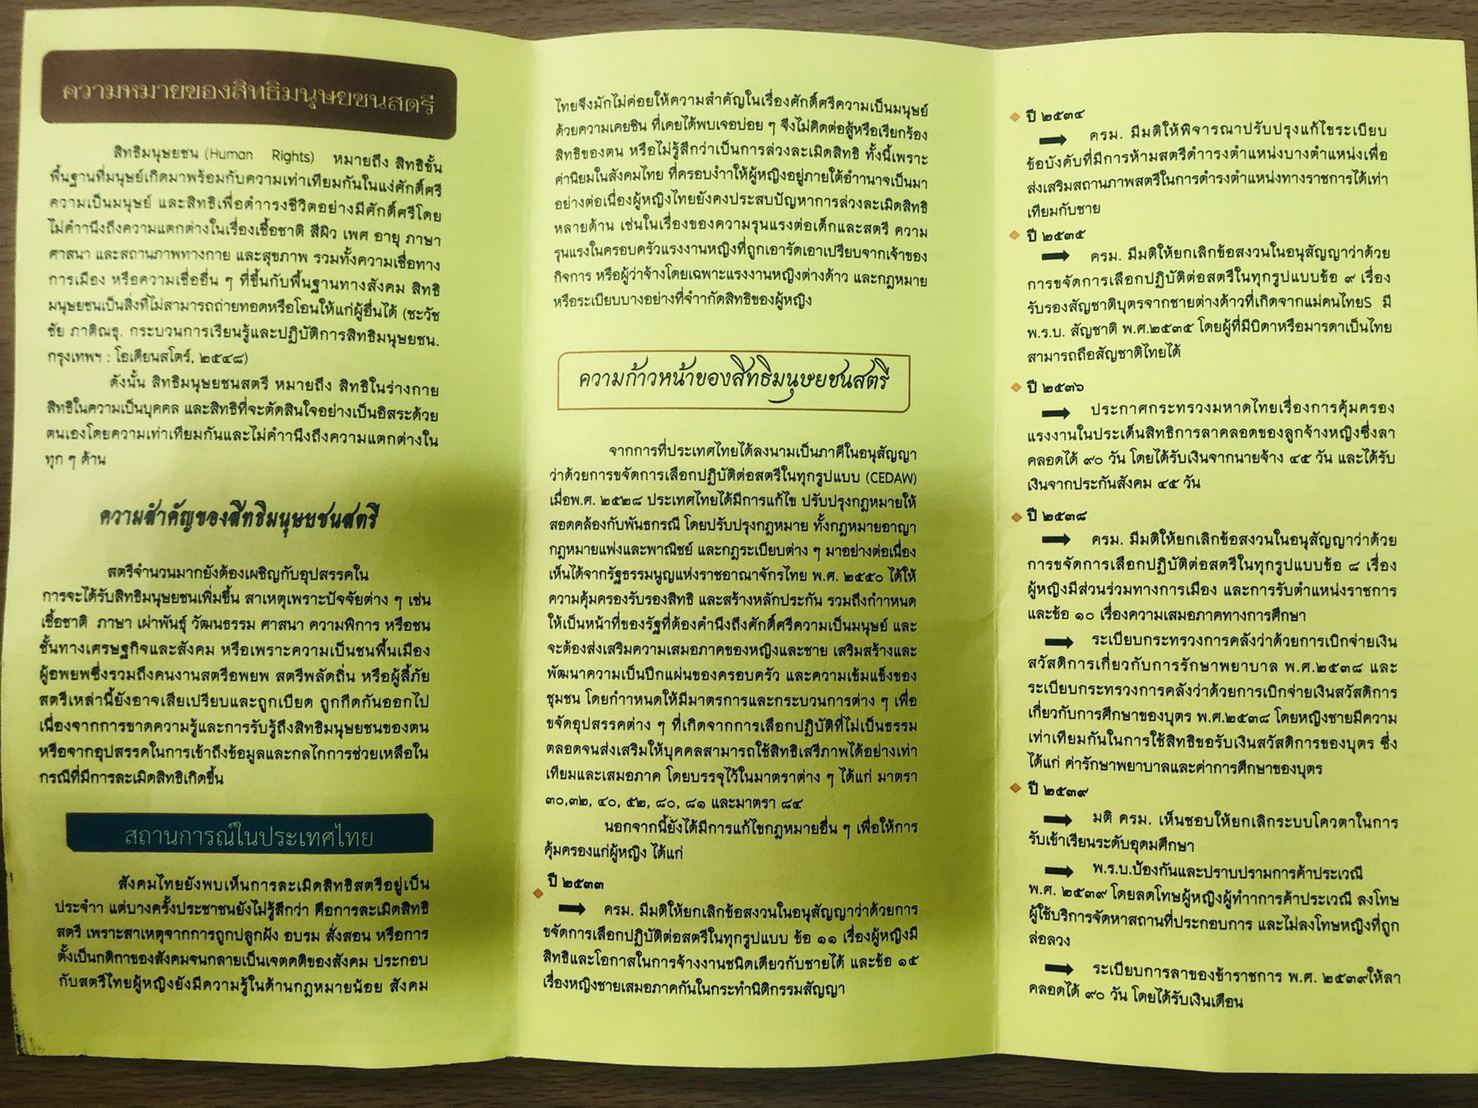 ความหมายของสิทธิมนุษยชนสตรี
สิทธิมนุษยชน (Human Rights) หมายถึง สิทธิขั้น
พื้นฐานที่มนุษย์เกิดมาพร้อมกับความเท่าเทียมกันในแง่ศักดิ์ศรี
ความเป็นมนุษย์ และสิทธิเพื่อดำารงชีวิตอย่างมีศักดิ์ศรีโดย
ไม่คำานึงถึงความแตกต่างในเรื่องเชื้อชาติ สีผิว เพศ อายุ ภาษา
ศาสนา และสถานภาพทางกาย และสุขภาพ รวมทั้งความเชื่อทาง
การเมือง หรือความเชื่ออื่น ๆ ที่ขึ้นกับพื้นฐานทางสังคม สิทธิ
มนุษยชนเป็นสิ่งที่ไม่สามารถถ่ายทอดหรือโอนให้แก่ผู้อื่นได้ (ชะวัช
ชัย ภาติณธุ. กระบวนการเรียนรู้และปฏิบัติการสิทธิมนุษยชน.
กรุงเทพฯ : โอเดียนสโตร์, ๒๕๔๘)
ดังนั้น สิทธิมนุษยชนสตรี หมายถึง สิทธิในร่างกาย
สิทธิในความเป็นบุคคล และสิทธิที่จะตัดสินใจอย่างเป็นอิสระด้วย
ตนเองโดยความเท่าเทียมกันและไม่คำานึงถึงความแตกต่างใน
ทุก ๆ ด้าน
ความสำคัญของสิทธิมนุษยชนสตรี
สตรีจำนวนมากยังต้องเผชิญกับอุปสรรคใน
การจะได้รับสิทธิมนุษยชนเพิ่มขึ้น สาเหตุเพราะปัจจัยต่าง ๆ เช่น
เชื้อชาติ ภาษา เผ่าพันธุ์ วัฒนธรรม ศาสนา ความพิการ หรือชน
ชั้นทางเศรษฐกิจและสังคม หรือเพราะความเป็นชนพื้นเมือง
ผู้อพยพซึ่งรวมถึงคนงานสตรีอพยพ สตรีพลัดถิ่น หรือผู้ลี้ภัย
สตรีเหล่านี้ยังอาจเสียเปรียบและถูกเบียด ถูกกีดกันออกไป
เนื่องจากการขาดความรู้และการรับรู้ถึงสิทธิมนุษยชนของตน
หรือจากอุปสรรคในการเข้าถึงข้อมูลและกลไกการช่วยเหลือใน
กรณีที่มีการละเมิดสิทธิเกิดขึ้น
สถานการณ์ในประเทศไทย
สังคมไทยยังพบเห็นการละเมิดสิทธิสตรีอยู่เป็น
ประจำา แต่บางครั้งประชาชนยังไม่รู้สึกว่า คือการละเมิดสิทธิ
สตรี เพราะสาเหตุจากการถูกปลูกฝัง อบรม สั่งสอน หรือการ
ตั้งเป็นกติกาของสังคมจนกลายเป็นเจตคติของสังคม ประกอบ
กับสตรีไทยผู้หญิงยังมีความรู้ในด้านกฎหมายน้อย สังคม
ไทยจึงมักไม่ค่อยให้ความสำคัญในเรื่องศักดิ์ศรีความเป็นมนุษย์
ด้วยความเคยชิน ที่เคยได้พบเจอบ่อย ๆ จึงไม่คิดต่อสู้หรือเรียกร้อง
สิทธิของตน หรือไม่รู้สึกว่าเป็นการล่วงละเมิดสิทธิ ทั้งนี้เพราะ
ค่านิยมในสังคมไทย ที่ครอบงำาให้ผู้หญิงอยู่ภายใต้อำานาจเป็นมา
อย่างต่อเนื่องผู้หญิงไทยยังคงประสบปัญหาการล่วงละเมิดสิทธิ
หลายด้าน เช่นในเรื่องของความรุนแรงต่อเด็กและสตรี ความ
รุนแรงในครอบครัวแรงงานหญิงที่ถูกเอารัดเอาเปรียบจากเจ้าของ
กิจการ หรือผู้ว่าจ้างโดยเฉพาะแรงงานหญิงต่างด้าว และกฎหมาย
หรือระเบียบบางอย่างที่จำากัดสิทธิของผู้หญิง
ความก้าวหน้าของสิทธิมนุษยชนสตรี
จากการที่ประเทศไทยได้ลงนามเป็นภาคีในอนุสัญญา
ว่าด้วยการขจัดการเลือกปฏิบัติต่อสตรีในทุกรูปแบบ (CEDAW)
เมื่อพ.ศ. ๒๕๒๘ ประเทศไทยได้มีการแก้ไข ปรับปรุงกฎหมายให้
สอดคล้องกับพันธกรณี โดยปรับปรุงกฎหมาย ทั้งกฎหมายอาญา
กฎหมายแพ่งและพาณิชย์ และกฎระเบียบต่าง ๆ มาอย่างต่อเนื่อง
เห็นได้จากรัฐธรรมนูญแห่งราชอาณาจักรไทย พ.ศ. ๒๕๕๐ ได้ให้
ความคุ้มครองรับรองสิทธิ และสร้างหลักประกัน รวมถึงกำาหนด
ให้เป็นหน้าที่ของรัฐที่ต้องคำนึงถึงศักดิ์ศรีความเป็นมนุษย์ และ
จะต้องส่งเสริมความเสมอภาคของหญิงและชาย เสริมสร้างและ
พัฒนาความเป็นปึกแผ่นของครอบครัว และความเข้มแข็งของ
ชุมชน โดยกำาหนดให้มีมาตรการและกระบวนการต่าง ๆ เพื่อ
ขจัดอุปสรรคต่าง ๆ ที่เกิดจากการเลือกปฏิบัติที่ไม่เป็นธรรม
ตลอดจนส่งเสริมให้บุคคลสามารถใช้สิทธิเสรีภาพได้อย่างเท่า
เทียมและเสมอภาค โดยบรรจุไว้ในมาตราต่าง ๆ ได้แก่ มาตรา
๓๐,๓๒, ๔๐, ๕๒, ๘๐, ๘๑ และมาตรา ๘๔
นอกจากนี้ยังได้มีการแก้ไขกฎหมายอื่น ๆ เพื่อให้การ
คุ้มครองแก่ผู้หญิง ได้แก่
ปี ๒๕๓๓
ครม. มีมติให้ยกเลิกข้อสงวนในอนุสัญญาว่าด้วยการ
ขจัดการเลือกปฏิบัติต่อสตรีในทุกรูปแบบ ข้อ ๑๑ เรื่องผู้หญิงมี
สิทธิและโอกาสในการจ้างงานชนิดเดียวกับชายได้ และข้อ ๑๕
เรื่องหญิงชายเสมอภาคกันในกระทำนิติกรรมสัญญา
ปี ๒๕๓๔
ครม. มีมติให้พิจารณาปรับปรุงแก้ไขระเบียบ
ข้อบังคับที่มีการห้ามสตรีดำารงตำแหน่งบางตำแหน่งเพื่อ
ส่งเสริมสถานภาพสตรีในการดำรงตำแหน่งทางราชการได้เท่า
เทียมกับชาย
ปี ๒๕๓๕
ครม. มีมติให้ยกเลิกข้อสงวนในอนุสัญญาว่าด้วย
การขจัดการเลือกปฏิบัติต่อสตรีในทุกรูปแบบข้อ ๙ เรื่อง
รับรองสัญชาติบุตรจากชายต่างด้าวที่เกิดจากแม่คนไทยS มี
พ.ร.บ. สัญชาติ พ.ศ.๒๕๓๕ โดยผู้ที่มีบิดาหรือมารดาเป็นไทย
สามารถถือสัญชาติไทยได้
ปี ๒๕๓๖
ประกาศกระทรวงมหาดไทยเรื่องการคุ้มครอง
แรงงานในประเด็นสิทธิการลาคลอดของลูกจ้างหญิงซึ่งลา
คลอดได้ ๙๐ วัน โดยได้รับเงินจากนายจ้าง ๔๕ วัน และได้รับ
เงินจากประกันสังคม ๔๕ วัน
ปี ๒๕๓๘
ครม. มีมติให้ยกเลิกข้อสงวนในอนุสัญญาว่าด้วย
การขจัดการเลือกปฏิบัติต่อสตรีในทุกรูปแบบข้อ ๘ เรื่อง
ผู้หญิงมีส่วนร่วมทางการเมือง และการรับตำแหน่งราชการ
และข้อ ๑๐ เรื่องความเสมอภาคทางการศึกษา
ระเบียบกระทรวงการคลังว่าด้วยการเบิกจ่ายเงิน
สวัสดิการเกี่ยวกับการรักษาพยาบาล พ.ศ.๒๕๓๘ และ
ระเบียบกระทรวงการคลังว่าด้วยการเบิกจ่ายเงินสวัสดิการ
เกี่ยวกับการศึกษาของบุตร พ.ศ.๒๕๓๘ โดยหญิงชายมีความ
เท่าเทียมกันในการใช้สิทธิขอรับเงินสวัสดิการของบุตร ซึ่ง
ได้แก่ ค่ารักษาพยาบาลและค่าการศึกษาของบุตร
ปี ๒๕๓๙
มติ ครม. เห็นชอบให้ยกเลิกระบบโควตาในการ
รับเข้าเรียนระดับอุดมศึกษา
พ.ร.บ.ป้องกันและปราบปรามการค้าประเวณี
พ.ศ. ๒๕๓๙ โดยลดโทษผู้หญิงผู้ทำาการค้าประเวณี ลงโทษ
ผู้ใช้บริการจัดหาสถานที่ประกอบการ และไม่ลงโทษหญิงที่ถูก
ล่อลวง
ระเบียบการลาของข้าราชการ พ.ศ. ๒๕๓๙ให้ลา
คลอดได้ ๙๐ วัน โดยได้รับเงินเดือน